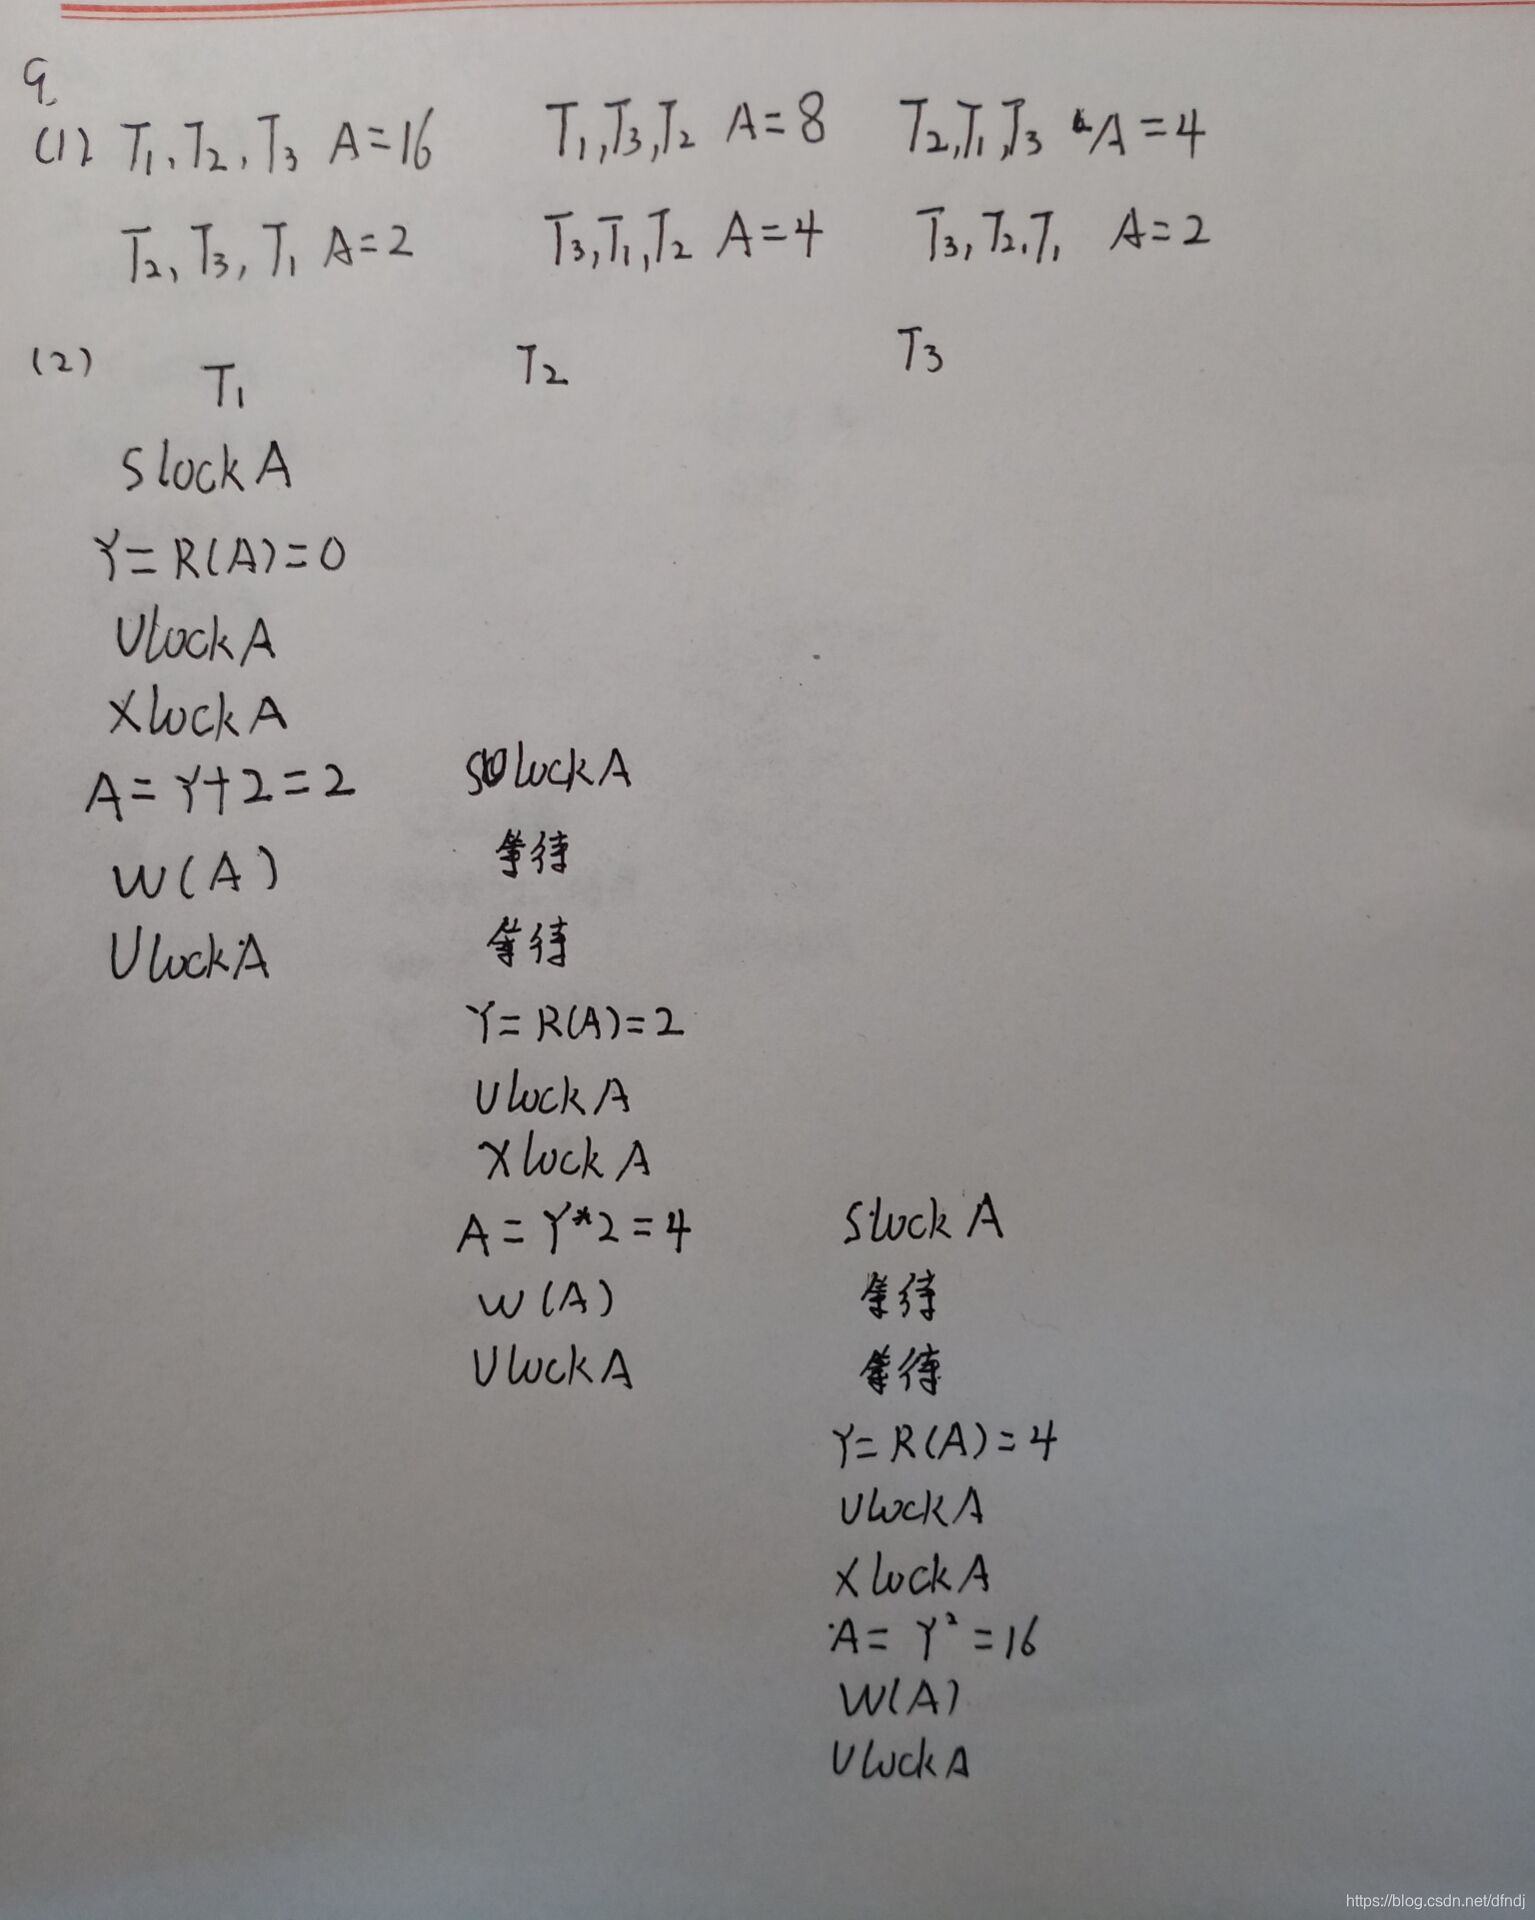 9.
(1) T₁、T₂、T₃ A=16 T₁,T₃,T₂ A=8 T₂,T₁,T₃ A=4
T₂, T₃, T₁ A=2 T₃,T₁,T₂ A=4 T₃,T₂.T₁ A=2
(2) T₁ T₂ T₃
Slock A
Y=R(A)=0
Ulock A
Xlock A
A=Y+2=2 Slock A
W(A) 等待
Ulock A 等待
Y=R(A)=2
Ulock A
Xlock A
A=Y*2=4 Slock A
W(A) 等待
Ulock A 等待
Y=R(A)=4
Ulock A
Xlock A
A=Y²=16
W(A)
Ulock A
https://blog.csdn.net/dfndj